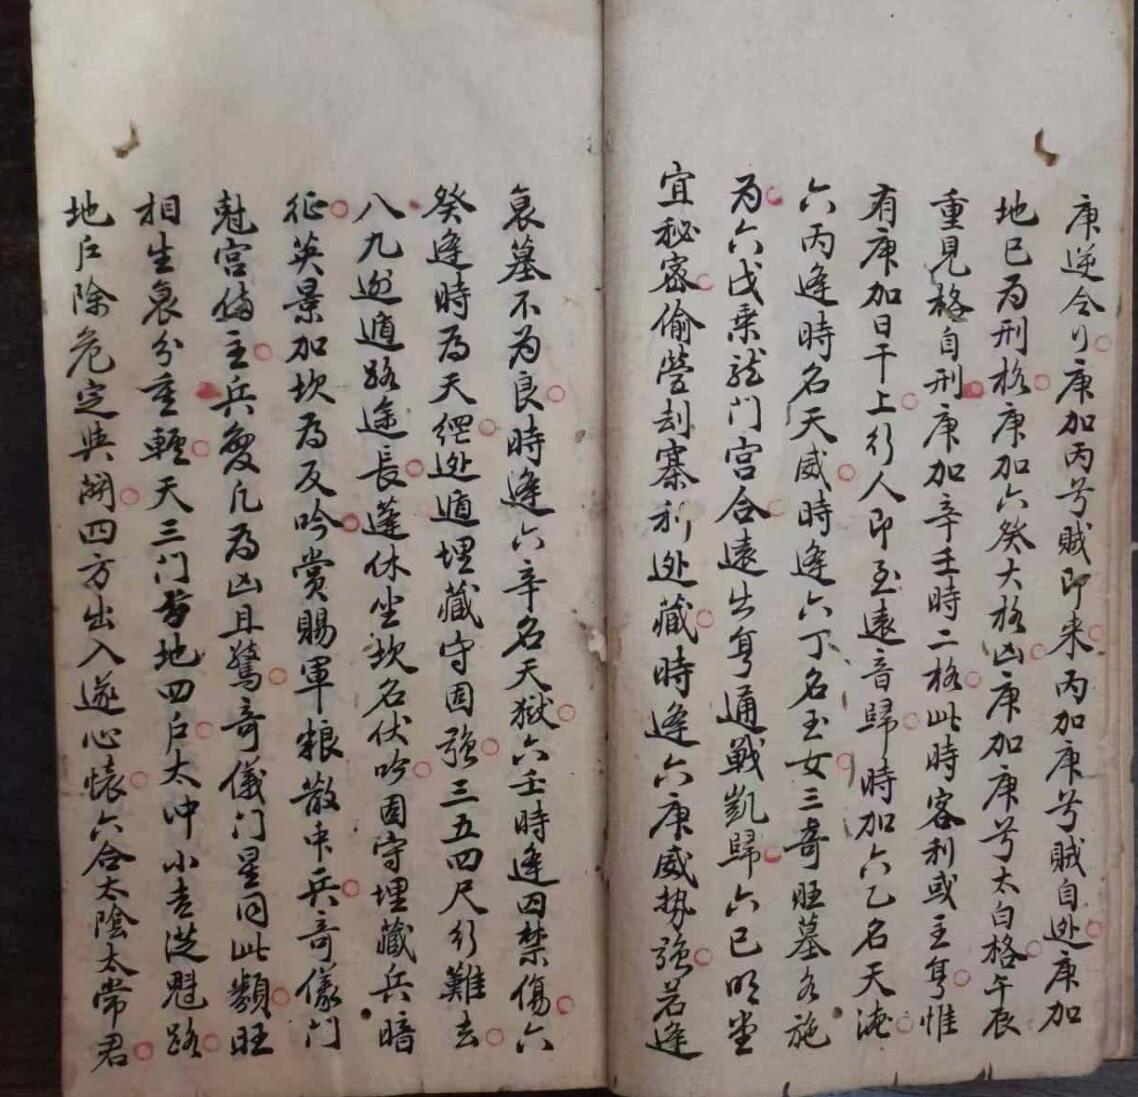 庚逆令刂庚加丙兮賊即来丙加庚兮賊自迯庚加
地已為刑格庚加六癸大格凶庚加庚兮太白格午辰
重見格自刑庚加辛壬時二格此時客利或主身惟
有庚加日干上行人即至遠音歸時加六乙名天淹
六丙逢時名天威時逢六丁名玉女三奇旺墓各施
为六戊乗龍门宮合遠出身通戰凱歸六已明堂
宜秘宻偷營刦寨利迯藏時逢六庚威势强若逢
衰墓不为良時逢六辛名天獄六壬時逢囚禁傷六
癸逢時為天網迯遁埋藏守固强三五四尺行難去
八九迯遁路途長蓬休坐坎名伏吟固守埋藏兵暗
征英景加坎為反吟賞賜軍粮散中兵奇儀门
尅宮傷主兵變凡為凶且驚奇儀门星同此類旺
相生衰分重輕天三门兮地四户太冲小吉従魁路
地户除危定與開四方出入遂心懐六合太陰太常君